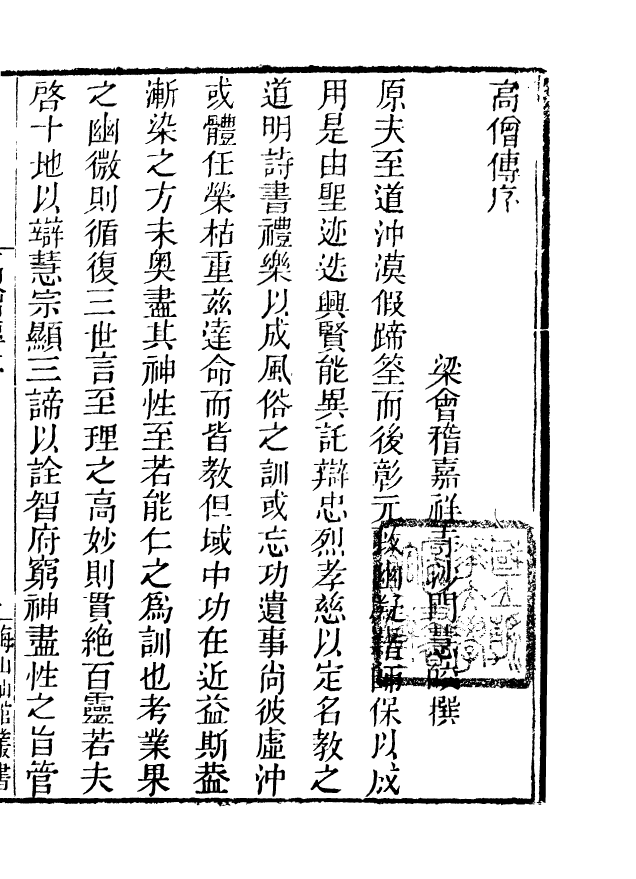 高僧傳序
梁會稽嘉祥寺沙門慧皎撰
原夫至道沖漠假蹄筌而後彰元致幽凝藉師保以成
用是由聖迹迭興賢能異託辯忠烈孝慈以定名教之
道明詩書禮樂以成風俗之訓或忘功遺事尚彼虛沖
或體任榮枯重茲達命而皆教但域中功在近益斯葢
漸染之方未奧盡其神性至若能仁之爲訓也考業果
之幽微則循復三世言至理之高妙則貫絶百靈若夫
啓十地以辯慧宗顯三諦以詮智府窮神盡性之旨管
海山仙館叢書